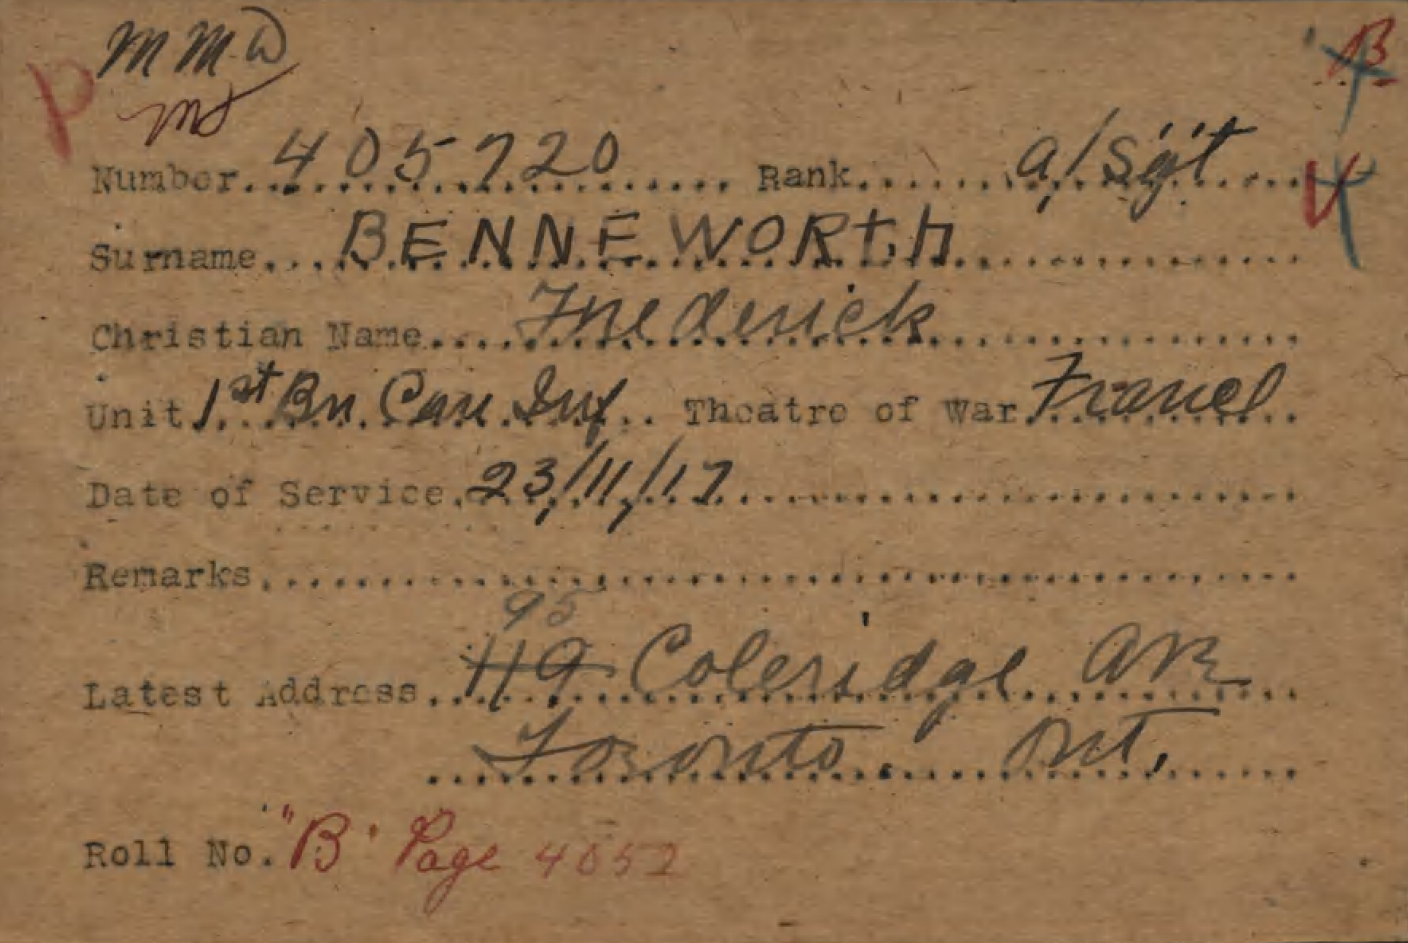 M M D
P
B
Number 405720 Rank a/Sgt
V
Surname BENNEWORth
Christian Name Frederick
Unit 1st Bn Can Inf Theatre of War France
Date of Service 23/11/17
Remarks
95
Latest Address 119 Coleridge Ave
Toronto Ont.
Roll No. "B" Page 4652